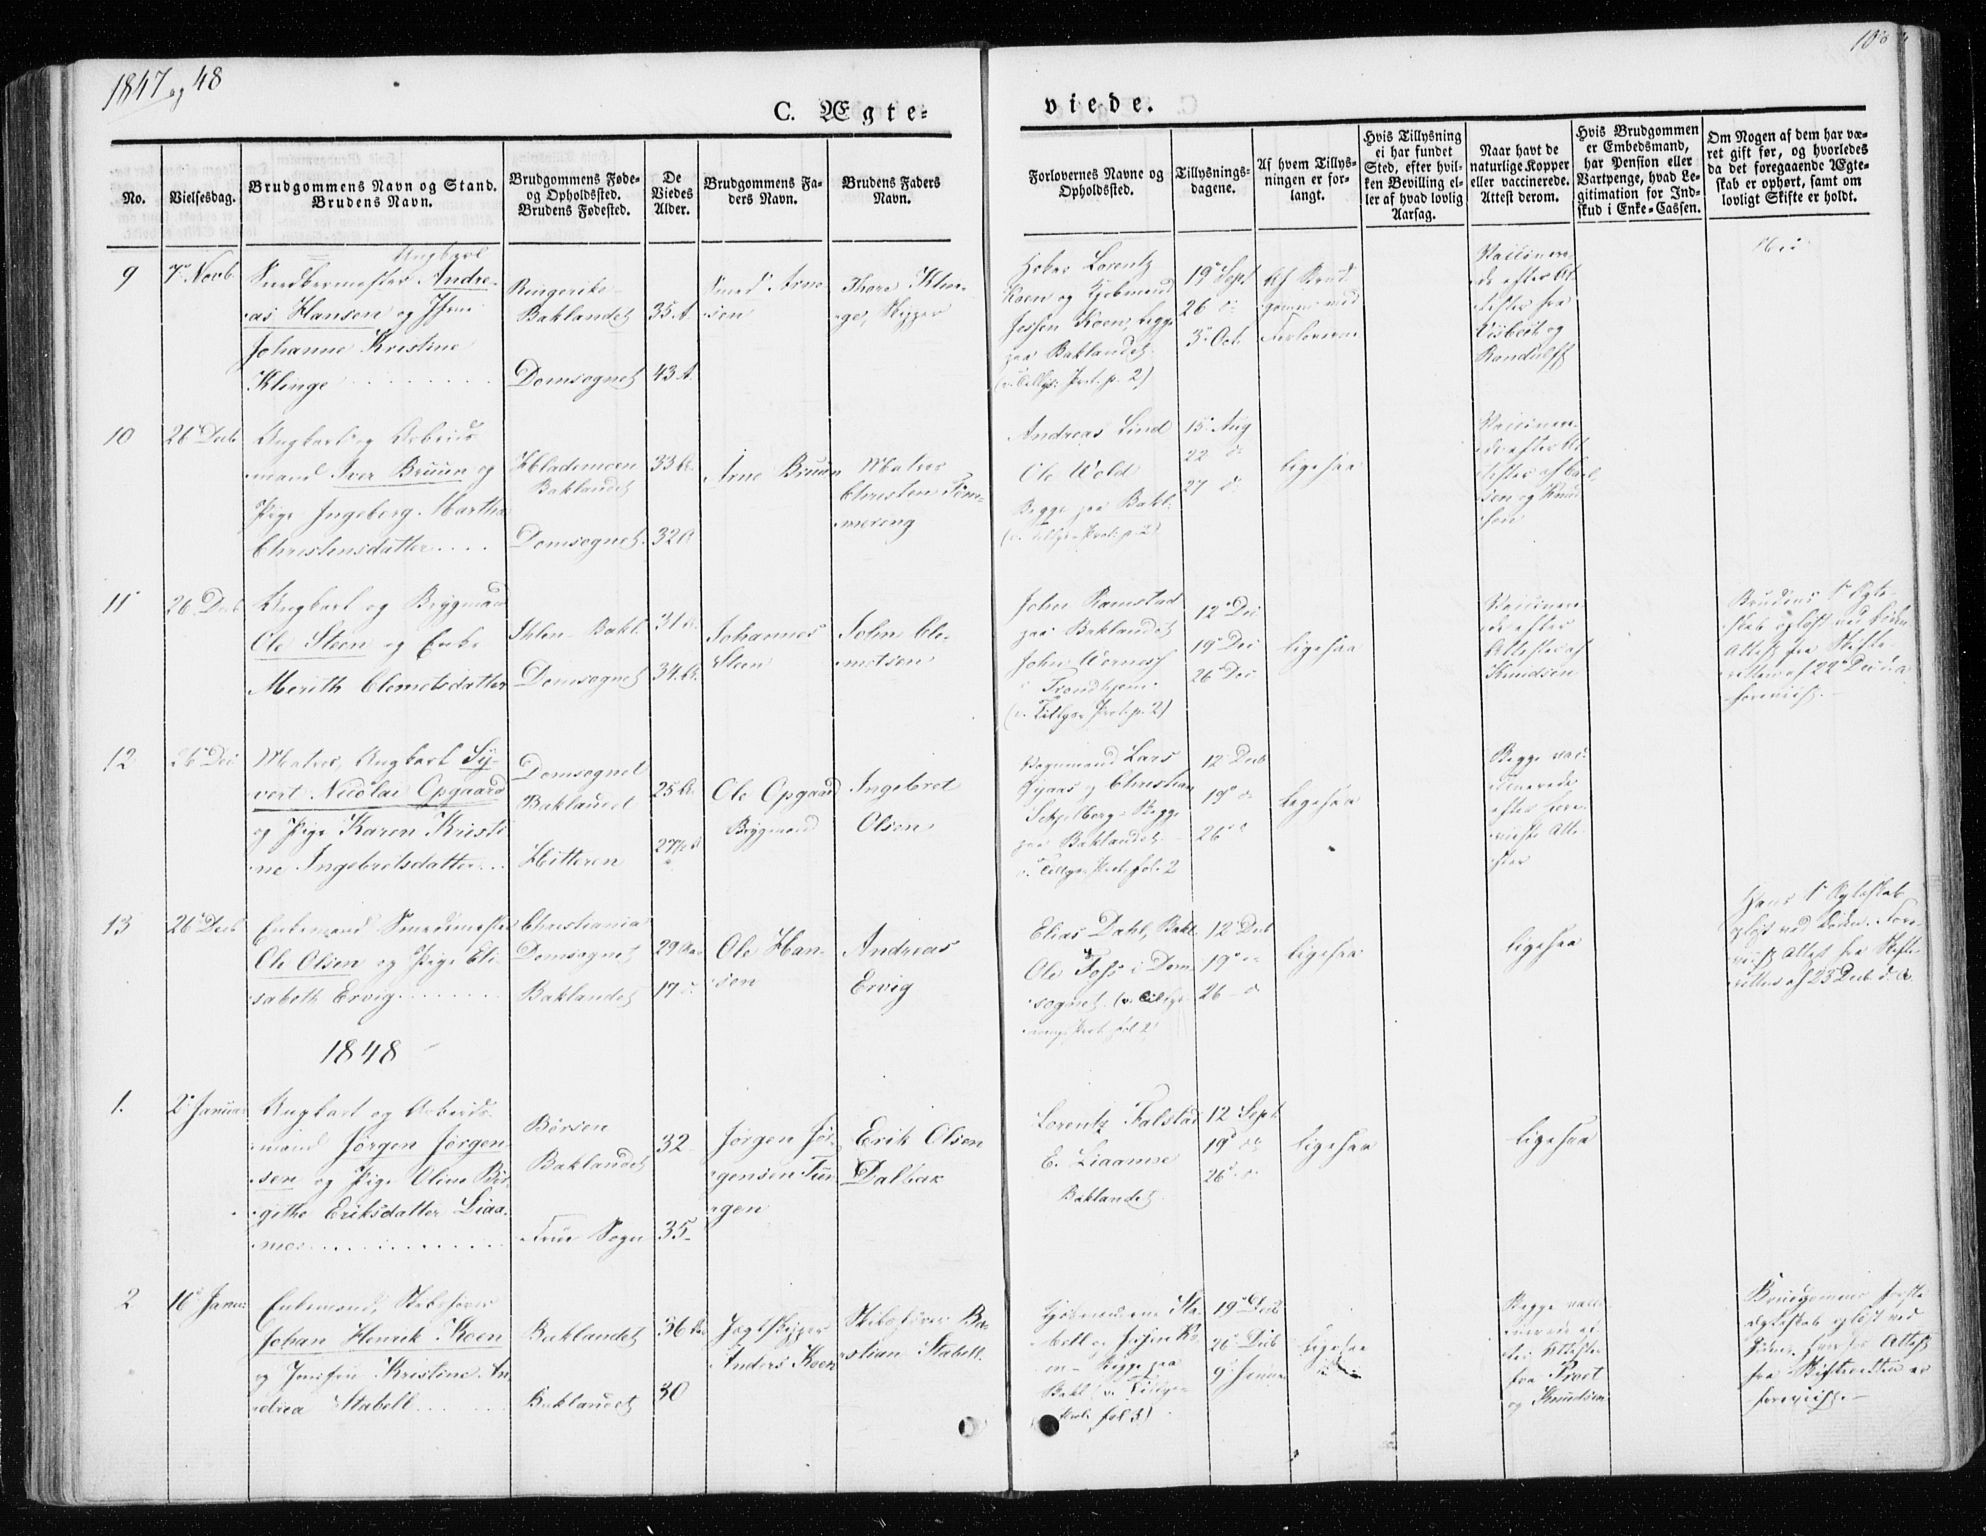 1847 og 48
C. Ægte-
viede.
No.
Vielsesdag.
Brudgommens Navn og Stand.
Brudens Navn.
Brudgommens Føde-
og Opholdssted.
Brudens Fødested.
De
Viedes
Alder.
Brudgommens Fa-
ders Navn.
Brudens Faders
Navn.
Forlovernes Navne og
Opholdssted.
Tillysnings-
dagene.
Af hvem Tillys-
ningen er for-
langt.
Hvis Tillysning
ei har fundet
Sted, efter hvil-
ken Bevilling el-
ler af hvad lovlig
Aarsag.
Naar havt de
naturlige Kopper
eller vaccinerede.
Attest derom.
Hvis Brudgommen
er Embedsmand,
har Pension eller
Vartpenge, hvad Le-
gitimation for Ind-
skud i Enke-Cassen.
Om Nogen af dem har væ-
ret gift før, og hvorledes
da det foregaaende Ægte-
skab er ophørt, samt om
lovligt Skifte er holdt.
9
7 Novb
Ungkarl
Snedkermester Andre-
as Hansen og Jfru
Johanne Kristine
Klinge
Ringerike
Baklandet
Domsognet
35 A.
43 A.
Smed Arne
sen
Thore Klin-
ge, Skipper
Lorentz
Koen og Kjøbmand
Jessen Koen, begge
paa Baklandet.
(v. Tillys. Prot. p. 2)
19 Sept
26 d
3 Oct.
Af Brud
gommen ved
Forloverne
Vaccinere-
de efter At
tester fra
Visbeck og
Randulff
10
26 Decb
Ungkarl og Arbeids
mand Iver Bruun og
Pige Ingeborg Martha
Christensdatter
Hlademoen
Baklandet
Domsognet
33
32
Arne Bruun
Matros
Christen Tøm-
mereng
Andreas Lind
Ole Wold
Begge paa Bakl.
(v. Tillys. Prot. p. 2)
15 Aug
22 d
27 d
ligesaa
Vaccinere
de efter At
tester af Carl
sen og Knud
sen
11
26 Decb
Ungkarl og Brygmand
Ole Steen og Enke
Merith Clemetsdatter
Ihlen - Bakl.
Domsognet
31
34
Johannes
Steen
John Cle-
metsen
John Ramstad
paa Baklandet
John Wernes
i Trondhjem.
(v. Tillys. Prot. p. 2)
12 Dec
19 Dec
26 Dec
ligesaa
Vaccinere
de efter
Attester af
Knudsen
Brudens 1 Ægte-
skab opløst ved Døden
Attest fra Skifte
retten af 22 Dec
foreviist.
12
26 Dec
Matros, Ungkarl Sy-
vert Nicolai Opgaard
og Pige Karen Kristi
ne Ingebretsdatter
Domsognet
Baklandet
Hitteren
25
27
Ole Opgaard
Brygmand
Ingebret
Olsen
Lars
og Christian
Schjelberg - Begge
paa Baklandet.
v. Tillys. Prot. fol. 2
12 Decb
19 d
26 d
ligesaa
Begge vac-
cinerede
efter fore
viiste Atte
ster
13
26 Decb
Enkemand Smedemester
Ole Olsen og Pige Eli-
sabeth Ervig
Christiania
Domsognet
Baklandet
29 Aar
17 d.
Ole Han-
sen
Andreas
Ervig
Elias Dahl, Bakl
Ole Foss i Dom
sognet. (v. Tillys-
nings Prot. fol 2)
12 Decb
19 d
26 - d
ligesaa
ligesaa
Hans 1 Ægteskab
opløst ved Døden. Fore-
viist Attest fra Skifte
retten af 23 Decb d. A.
1848
1.
2 Januar
Ungkarl og Arbeids
mand Jørgen Jørgen-
sen og Pige Oline Bir-
githe Eriksdatter Liaa-
mos
Børsen
Baklandet
Frue Sogn
32
35
Jørgen Jør
gensen Tun
gen
Erik Olsen
Dalbak
Lorentz Falstad
E. Liaamse
Baklandet
12 Sept
19 d
26 d
ligesaa
ligesaa
2
16 Janu
Enkemand, Skibsfører
Johan Henrik Koen
og Jomfru Kristine An
drea Stabell
Baklandet
Baklandet
36 Aar
30
Jagtskipper
Anders Koen
Skibsfører Ba-
stian Stabell.
Kjøbmændene Sta-
bell og
Begge paa
Bakl. (v. Tillys-
Prot. fol 3)
19 Decb
26 Decb
9 Janua
ligesaa
Begge vacci
nerede ef
ter Attester
fra Prost
og Knudsen
Brudgommens første
Ægteskab opløst ved
Døden, hvorfor Attest
fra Skifteretten er
foreviist.